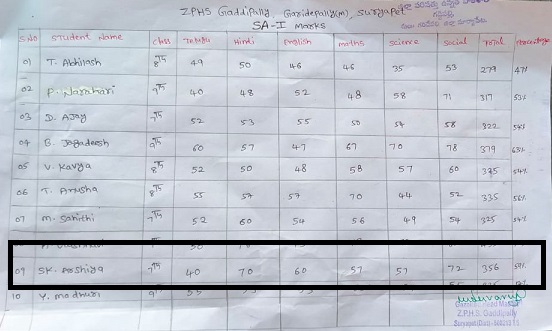 ZPHS Gaddipally, Garidepally(m), Suryapet
SA-I Marks
S.No Student Name Class Telugu Hindi English maths science Social Total Percentage
01 T. Abhilash 8th 49 50 46 46 35 53 279 47%
02 P. Narahari 9th 40 48 52 48 58 71 317 53%
03 D. Ajay 7th 52 53 55 50 54 58 322 54%
04 B. Jagadeesh 9th 60 57 47 67 70 78 379 63%
05 V. Kavya 8th 52 50 48 58 57 60 325 54%
06 T. Anusha 8th 55 57 57 70 44 52 335 56%
07 M. Sahithi 7th 52 60 54 56 49 54 325 54%
09 SK. Arshiya 7th 40 70 60 57 57 72 356 59%
10 Y. Madhuri 9th
Z.P.H.S. Gaddipally